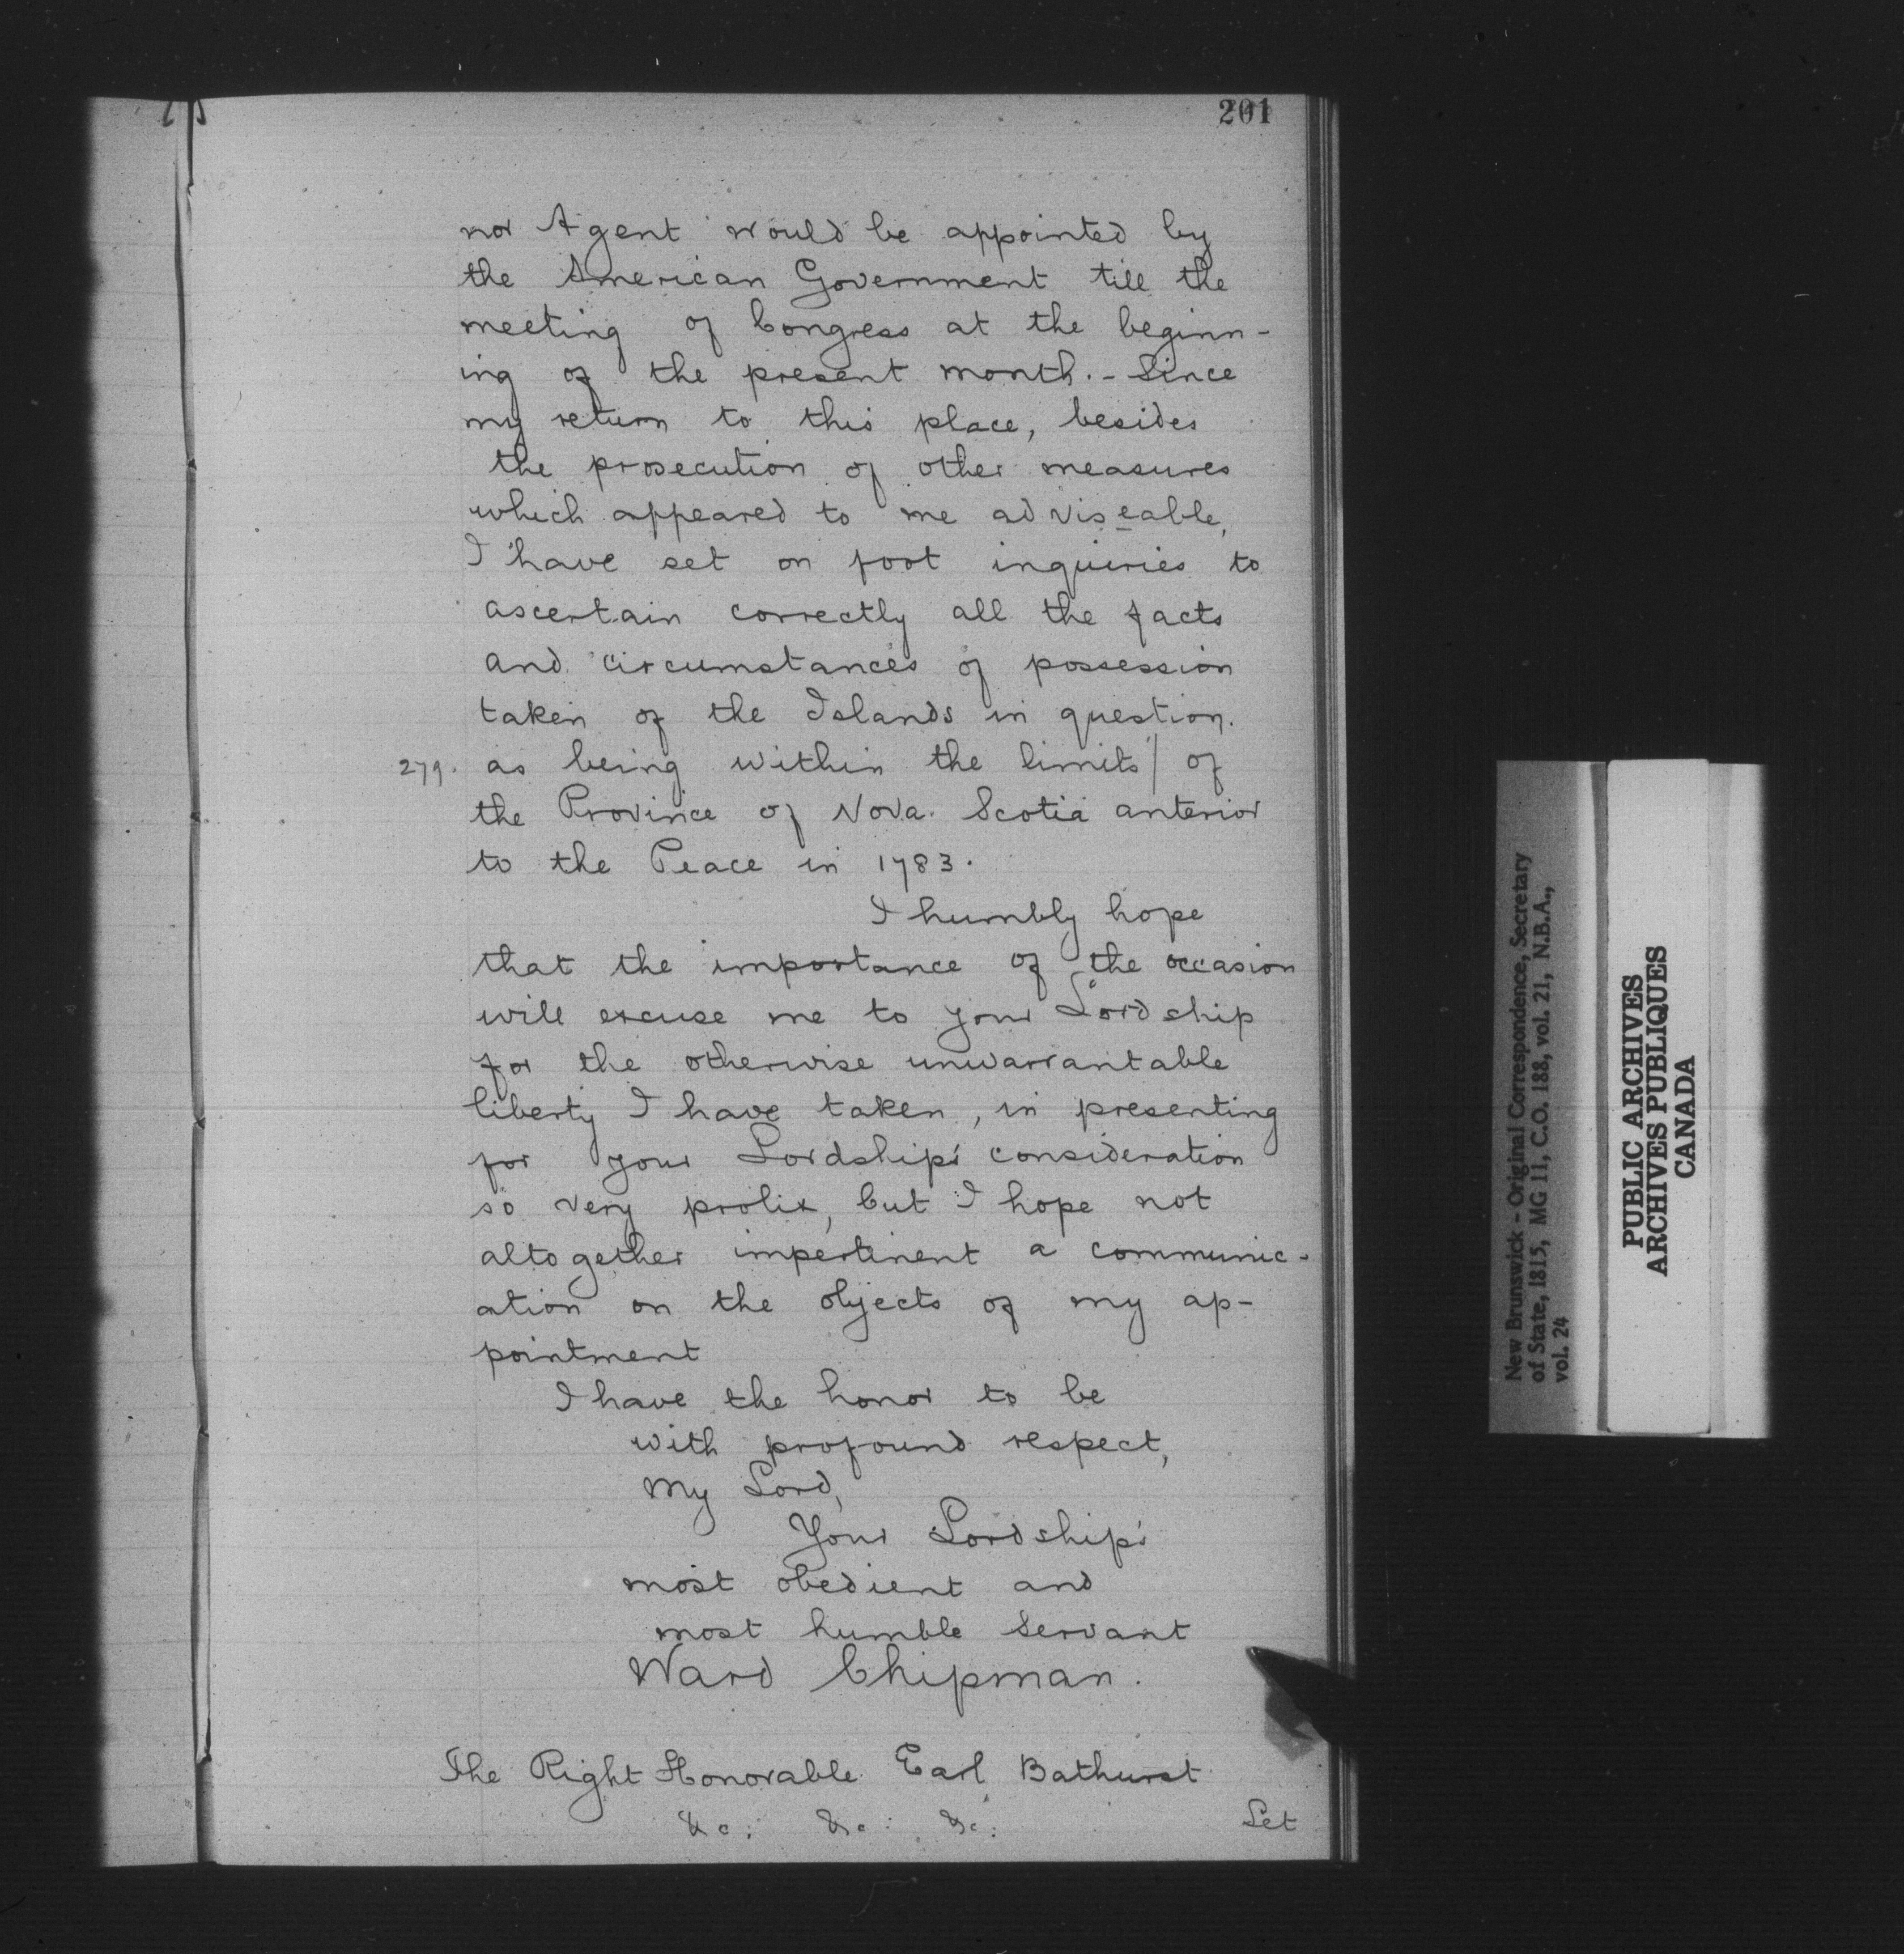 201
nor Agent would be appointed by
the American Government till the
meeting of Congress at the beginn-
ing of the present month. - Since
my return to this place, besides
the prosecution of other measures
which appeared to me adviseable,
I have set on foot inquiries to
ascertain correctly all the facts
and circumstances of possession
taken of the Islands in question.
279. as being within the limits / of
the Province of Nova Scotia anterior
to the Peace in 1783.
I humbly hope
that the importance of the occasion
will excuse me to your Lordship
for the otherwise unwarrantable
liberty I have taken, in presenting
for your Lordship's consideration
so very prolix, but I hope not
altogether impertinent a communic-
ation on the objects of my ap-
pointment
I have the honor to be
with profound respect,
My Lord,
Your Lordship's
most obedient and
most humble Servant
Ward Chipman.
The Right Honorable Earl Bathurst
&c: &c: &c:
Let
New Brunswick - Original Correspondence, Secretary
of State, 1815, MG 11, C.O. 188, vol. 21, N.B.A.,
vol. 24
PUBLIC ARCHIVES
ARCHIVES PUBLIQUES
CANADA